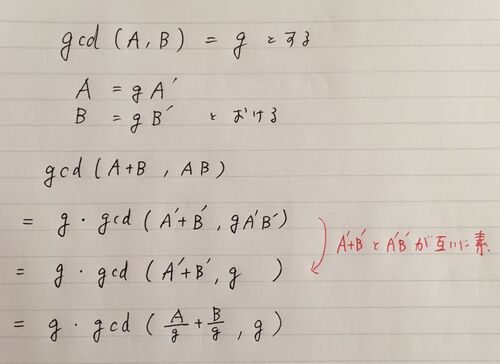 gcd (A, B) = g とする
A = gA′
B = gB′ とおける
gcd (A+B , AB)
= g · gcd (A′+B′, gA′B′)
A′+B′とA′B′が互いに素
= g · gcd (A′+B′, g )
= g · gcd (A/g + B/g , g)